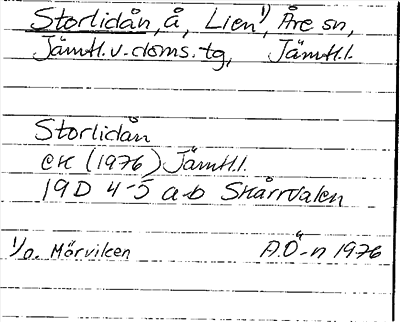 Storlidån, å, Lien¹⁾, Åre sn,
Jämtl.v.doms.tg, Jämtl.l.
Storlidån
ek (1976) Jämtl.l.
19D 4-5 a-b Skårrvalen
¹/o. Mörviken A.Ö-n 1976